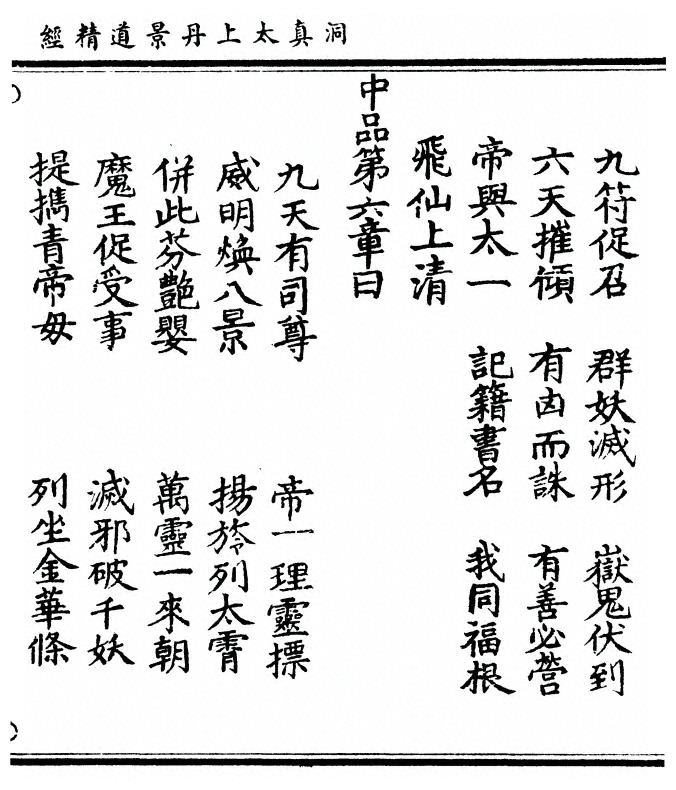 洞真太上丹景道精經
九符促召 群妖滅形 嶽鬼伏到
六天摧傾 有凶而誅 有善必營
帝與太一 記籍書名 我同福根
飛仙上清
中品第六章曰
九天有司尊 帝一理靈摽
威明煥八景 揚旍列太霄
併此芬艷嬰 萬靈一來朝
魔王促受事 滅邪破千妖
提擕青帝毋 列坐金華條